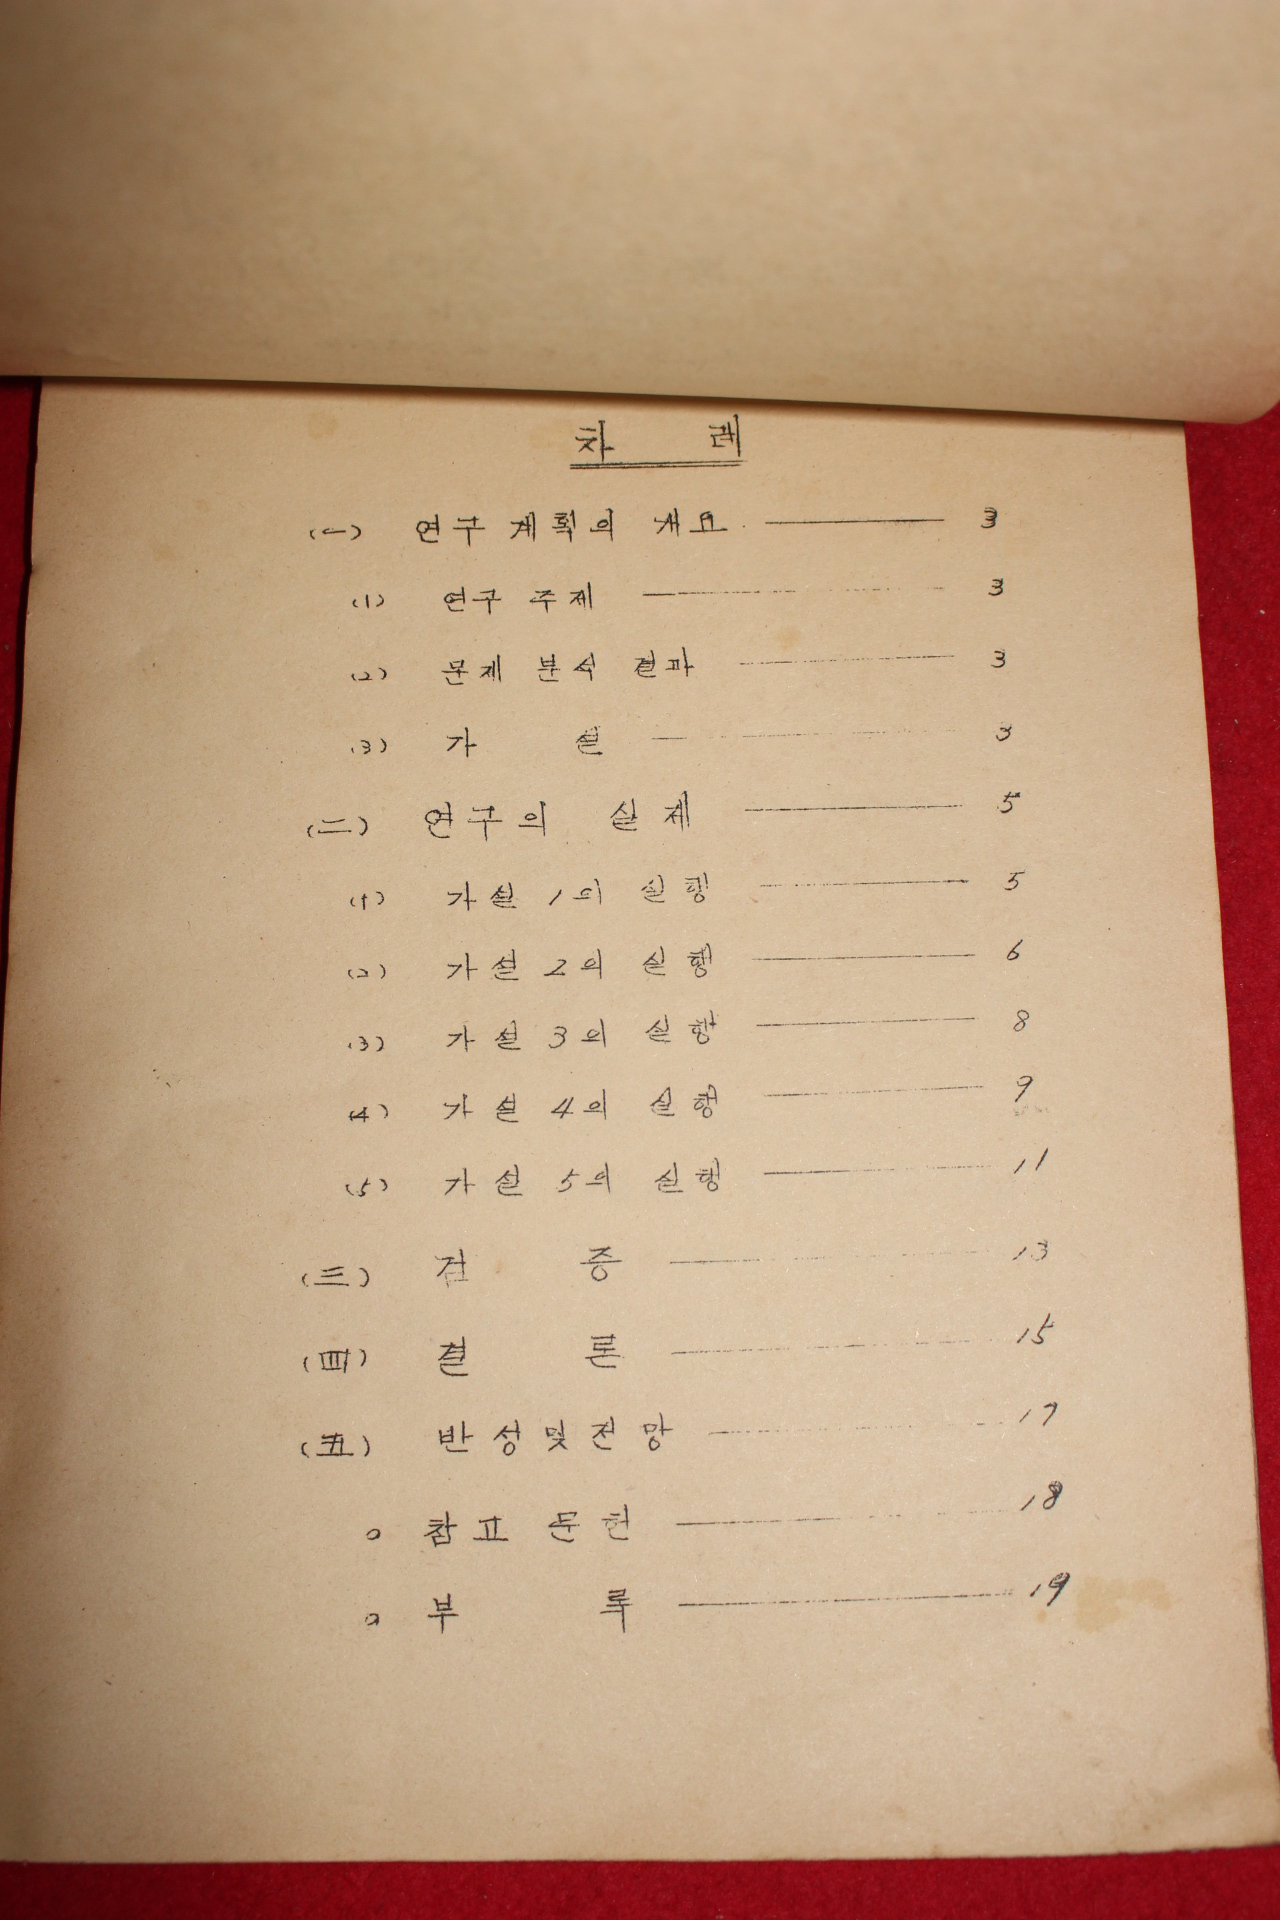 차 례
(一) 연구 계획의 개요 ——— 3
(1) 연구 주제 ——— 3
(2) 문제 분석 결과 ——— 3
(3) 가 설 ——— 3
(二) 연구의 실제 ——— 5
(1) 가설 1의 실행 ——— 5
(2) 가설 2의 실행 ——— 6
(3) 가설 3의 실행 ——— 8
(4) 가설 4의 실행 ——— 9
(5) 가설 5의 실행 ——— 11
(三) 검 증 ——— 13
(四) 결 론 ——— 15
(五) 반성 및 전망 ——— 17
○ 참고 문헌 ——— 18
○ 부 록 ——— 19